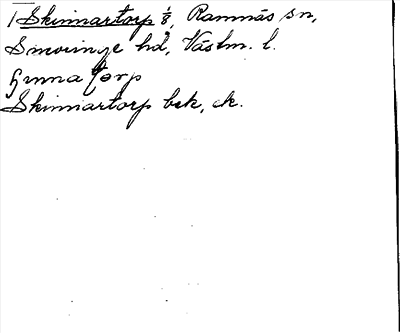 Skinnartorp 1/8, Ramnäs sn,
Snevringe hd, Västm. l.
torp
Skinnartorp bek, ek.